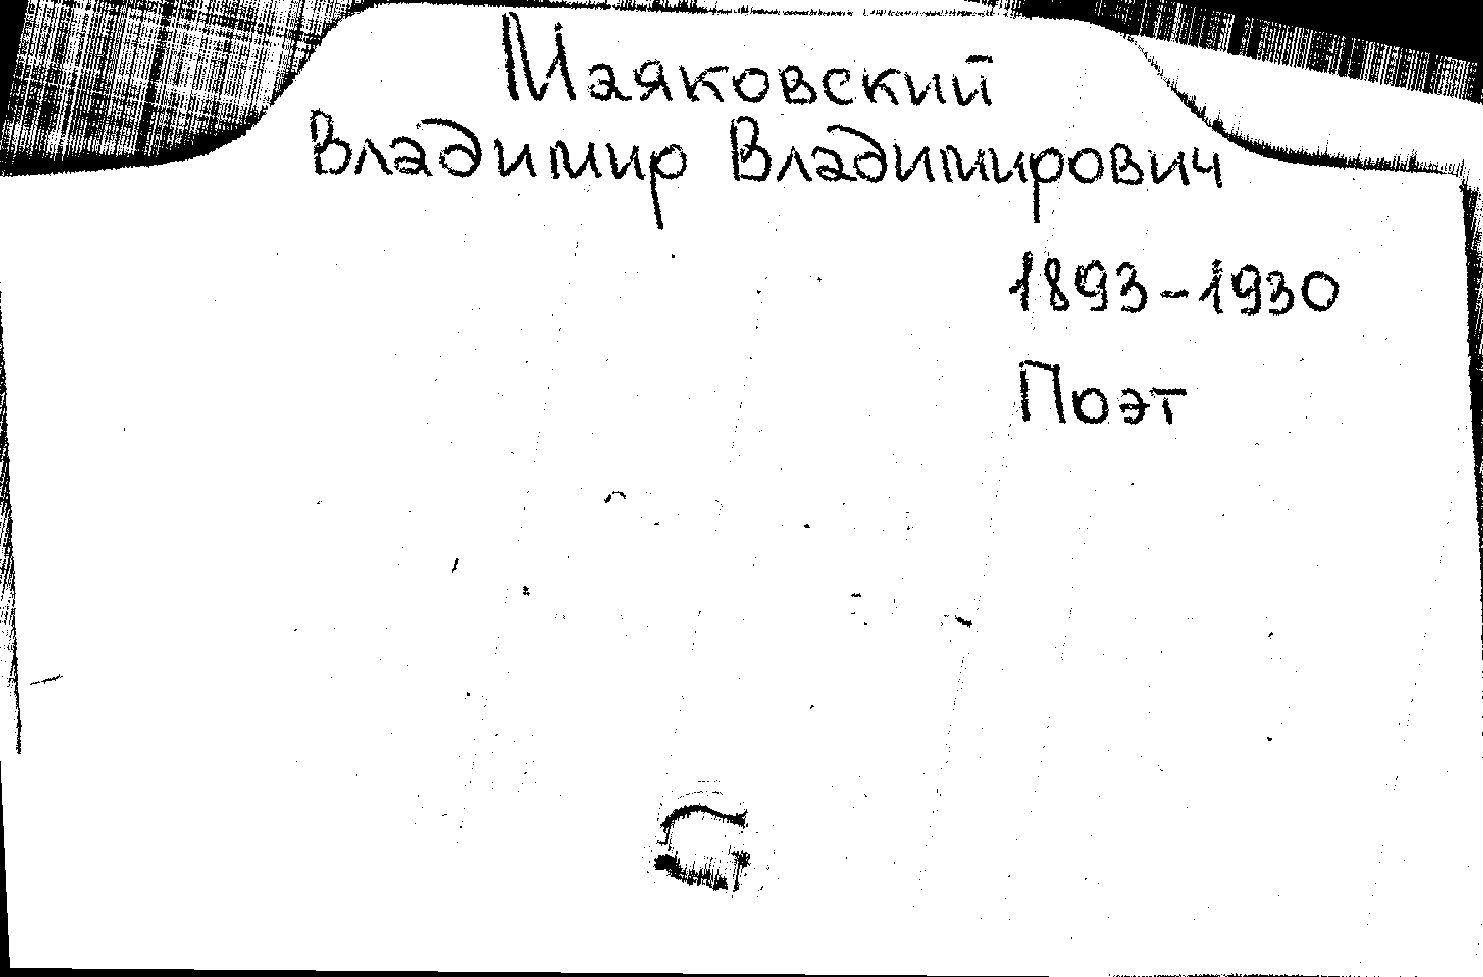 Маяковский
Владимир Владимирович
1893-1930
Поэт